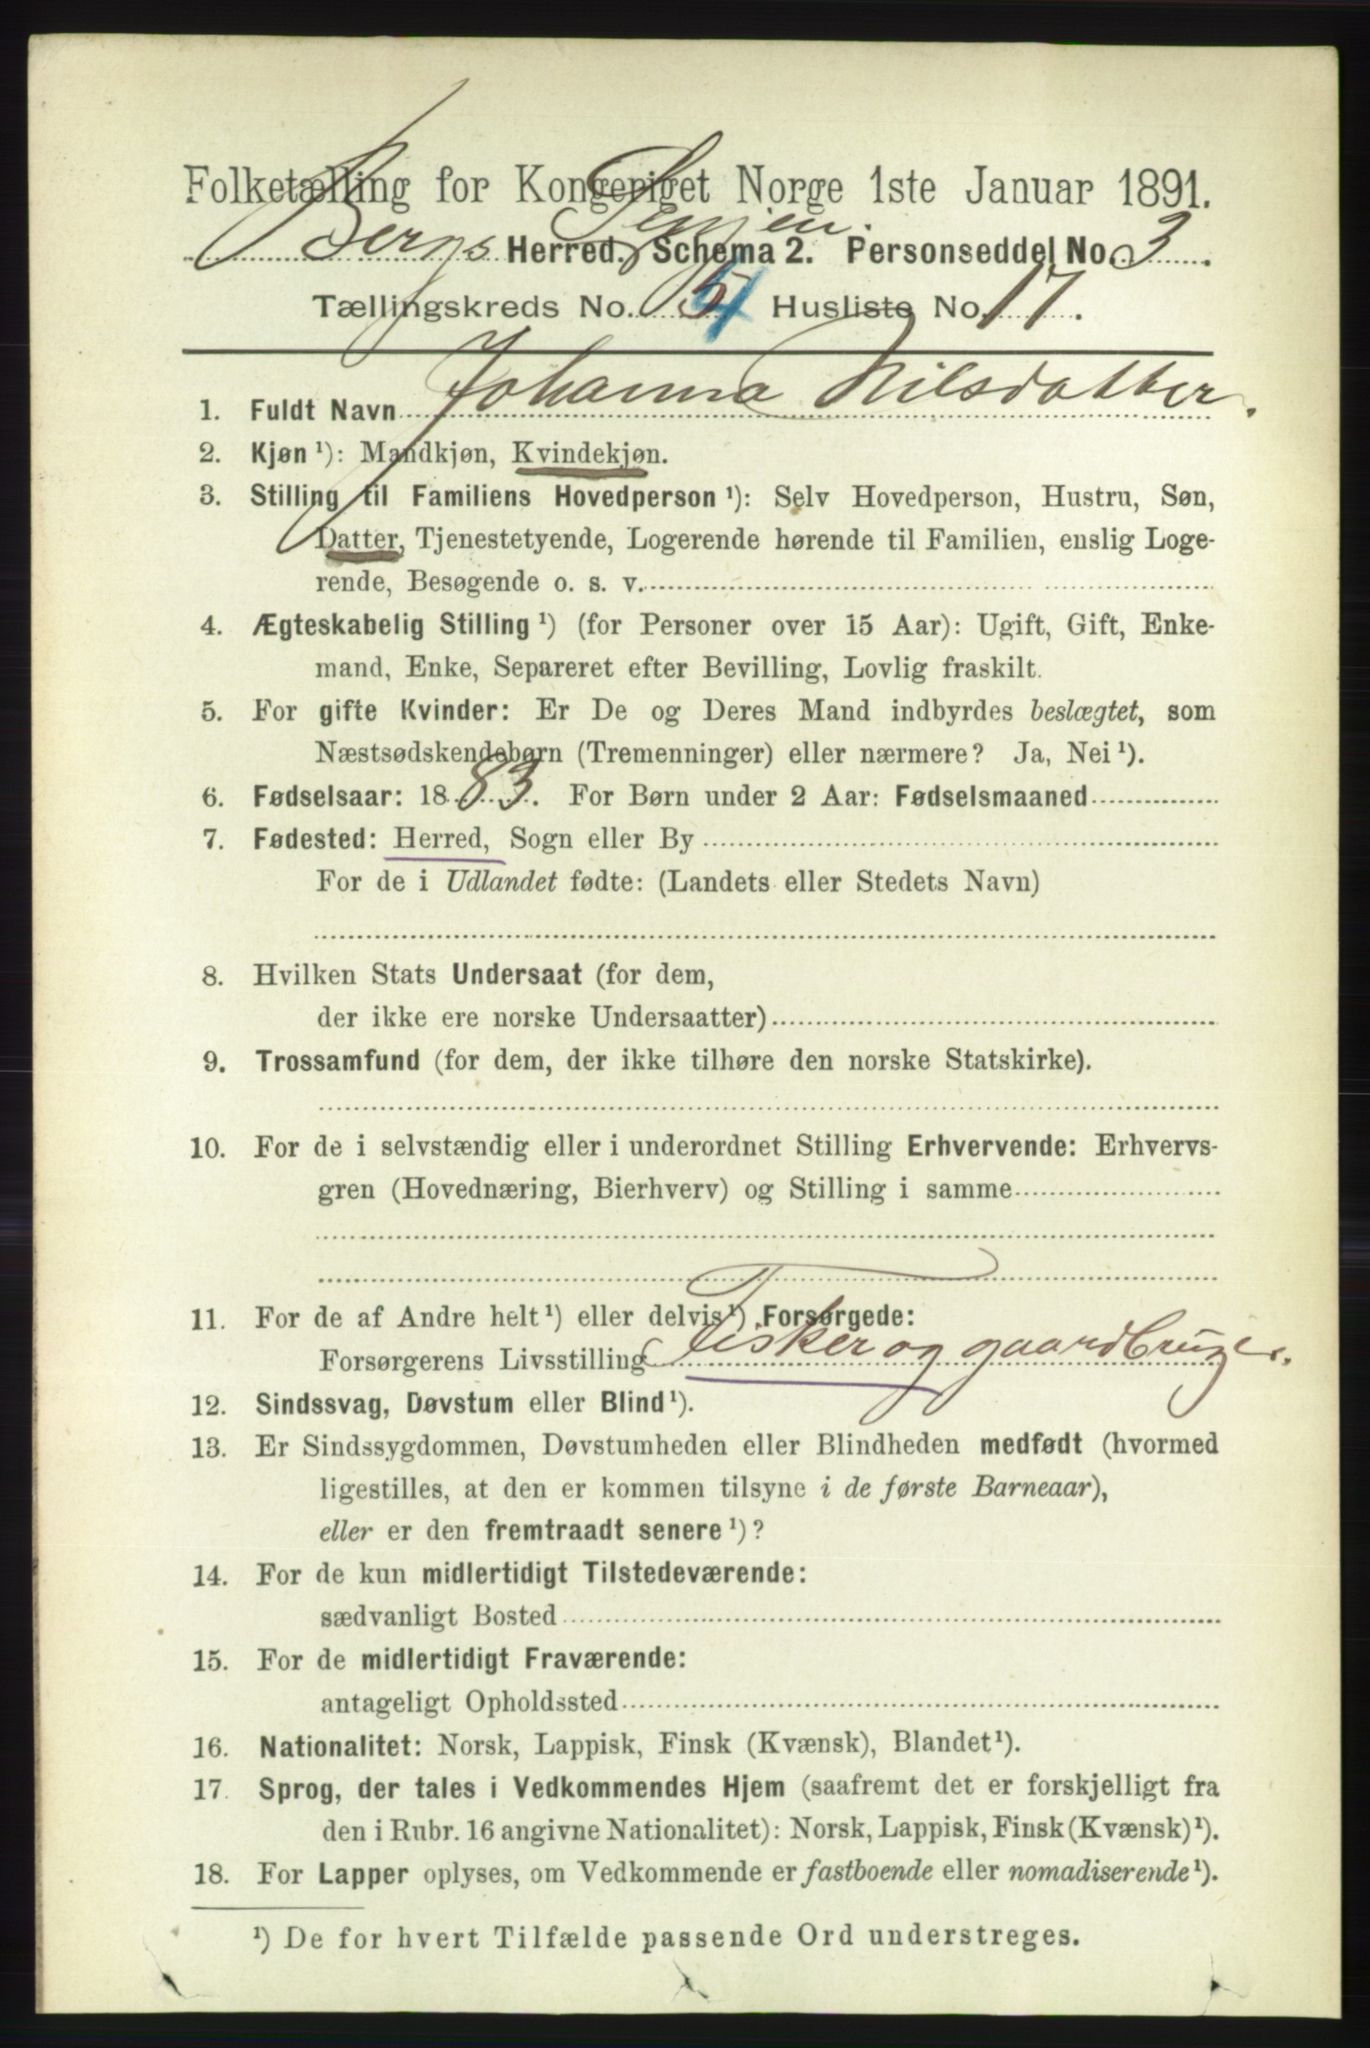 Folketælling for Kongeriget Norge 1ste Januar 1891.
Senjen.
Bergs Herred. Schema 2. Personseddel No. 3.
Tællingskreds No. 5 4 Husliste No. 17.
1. Fuldt Navn Johanna Nilsdatter.
2. Kjøn ¹): Mandkjøn, Kvindekjøn.
3. Stilling til Familiens Hovedperson ¹): Selv Hovedperson, Hustru, Søn,
Datter, Tjenestetyende, Logerende hørende til Familien, enslig Loge-
rende, Besøgende o. s. v.
4. Ægteskabelig Stilling ¹) (for Personer over 15 Aar): Ugift, Gift, Enke-
mand, Enke, Separeret efter Bevilling, Lovlig fraskilt.
5. For gifte Kvinder: Er De og Deres Mand indbyrdes beslægtet, som
Næstsødskendebørn (Tremenninger) eller nærmere? Ja, Nei ¹).
6. Fødselsaar: 1883. For Børn under 2 Aar: Fødselsmaaned
7. Fødested: Herred, Sogn eller By
For de i Udlandet fødte: (Landets eller Stedets Navn)
8. Hvilken Stats Undersaat (for dem,
der ikke ere norske Undersaatter)
9. Trossamfund (for dem, der ikke tilhøre den norske Statskirke).
10. For de i selvstændig eller i underordnet Stilling Erhvervende: Erhvervs-
gren (Hovednæring, Bierhverv) og Stilling i samme
11. For de af Andre helt ¹) eller delvis ¹) Forsørgede:
Forsørgerens Livsstilling Fisker og gaardbruger.
12. Sindssvag, Døvstum eller Blind ¹).
13. Er Sindssygdommen, Døvstumheden eller Blindheden medfødt (hvormed
ligestilles, at den er kommen tilsyne i de første Barneaar),
eller er den fremtraadt senere ¹)?
14. For de kun midlertidigt Tilstedeværende:
sædvanligt Bosted
15. For de midlertidigt Fraværende:
antageligt Opholdssted
16. Nationalitet: Norsk, Lappisk, Finsk (Kvænsk), Blandet ¹).
17. Sprog, der tales i Vedkommendes Hjem (saafremt det er forskjelligt fra
den i Rubr. 16 angivne Nationalitet): Norsk, Lappisk, Finsk (Kvænsk) ¹).
18. For Lapper oplyses, om Vedkommende er fastboende eller nomadiserende ¹).
¹) De for hvert Tilfælde passende Ord understreges.